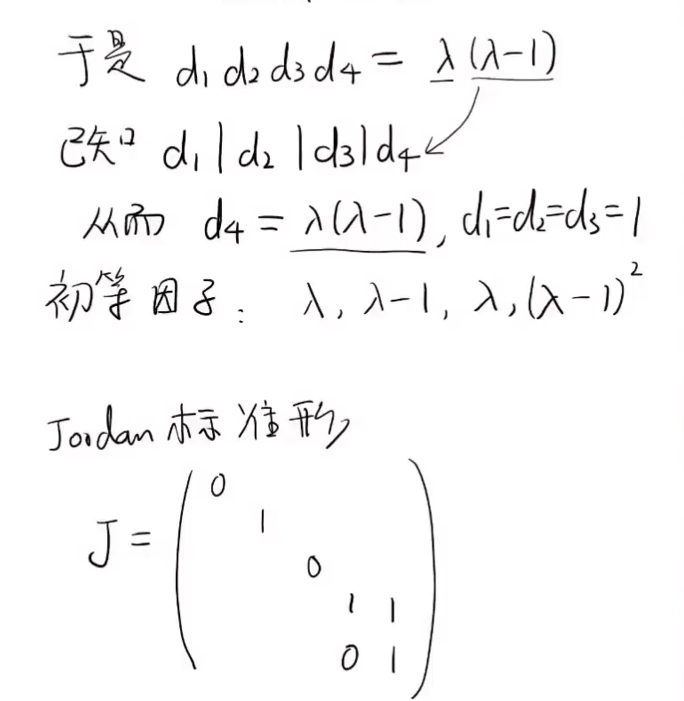 于是 d₁ d₂ d₃ d₄ = λ (λ-1)
已知 d₁ | d₂ | d₃ | d₄
从而 d₄ = λ(λ-1), d₁=d₂=d₃=1
初等因子: λ, λ-1, λ, (λ-1)²
Jordan 标准形
J =
0
1
0
1 1
0 1